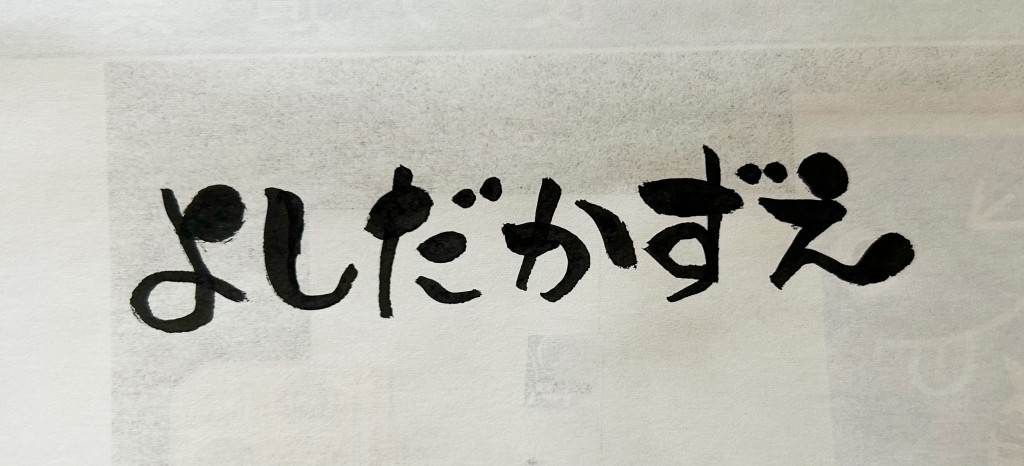 よしだかずえ